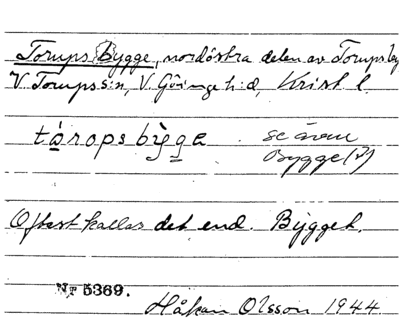 Torups bygge, nordöstra delen av Torups by
V. Torups s:n, V. Göinge h:d, Krist. l.
tárops bỳgge se även
Bygge(2)
Oftast kallas det end. Bygget.
Nr 5369.
Håkan Olsson 1944